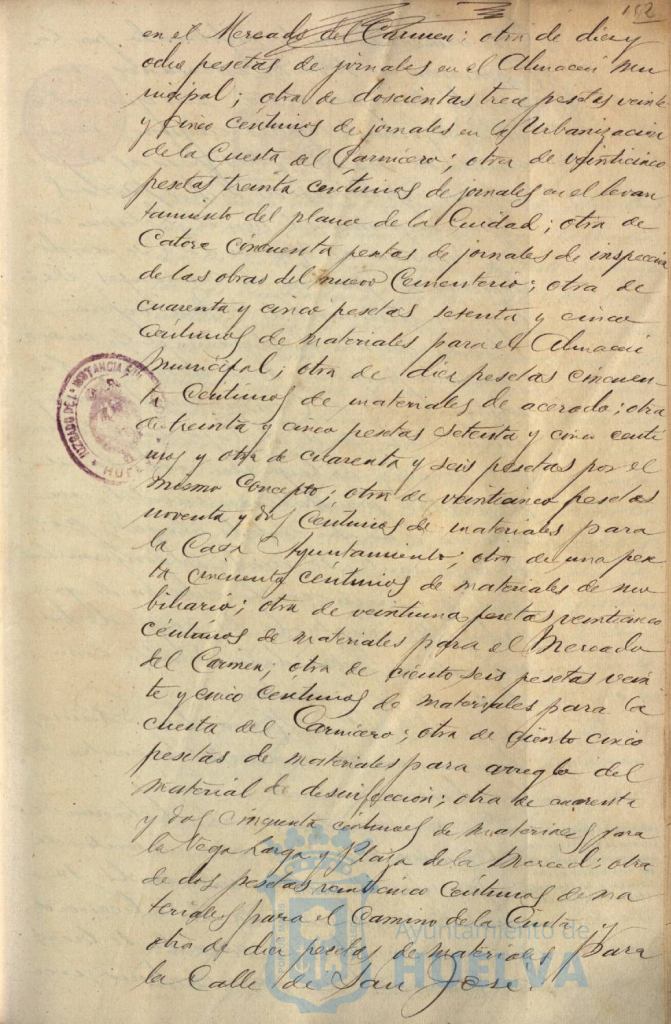 152
en el Mercado del Carmen; otra de diez y
ocho pesetas de jornales en el Almacen Mu
nicipal; otra de doscientas trece pesetas veinte
y cinco centimos de jornales en la Urbanizacion
de la Cuesta del Carnicero; otra de veinticinco
pesetas treinta centimos de jornales en el levan
tamiento del plano de la Ciudad; otra de
Catorce cincuenta pesetas de jornales de inspeccion
de las obras del nuevo Cementerio; otra de
cuarenta y cinco pesetas sesenta y cinco
centimos de materiales para el Almacen
Municipal; otra de diez pesetas cincuen
ta centimos de materiales de acerado; otra
de treinta y cinco pesetas setenta y cinco centi
mos y otra de cuarenta y seis pesetas por el
mismo concepto; otra de veinticinco pesetas
noventa y dos centimos de materiales para
la Casa Ayuntamiento; otra de una pese
ta cincuenta céntimos de materiales de mo
biliario; otra de veintiuna pesetas veinticinco
céntimos de materiales para el Mercado
del Carmen; otra de ciento seis pesetas vein
te y cinco centimos de materiales para la
cuesta del Carnicero; otra de ciento cinco
pesetas de materiales para arreglo del
material de desinfeccion; otra de cuarenta
y dos cincuenta céntimos de materiales para
la Vega Larga y Plaza de la Merced; otra
de dos pesetas veinticinco centimos de ma
teriales para el Camino de la Cinta y
otra de diez pesetas de materiales para
la Calle de San José.
JUZGADO DE 1ª INSTANCIA
HUELVA
Ayuntamiento de
HUELVA